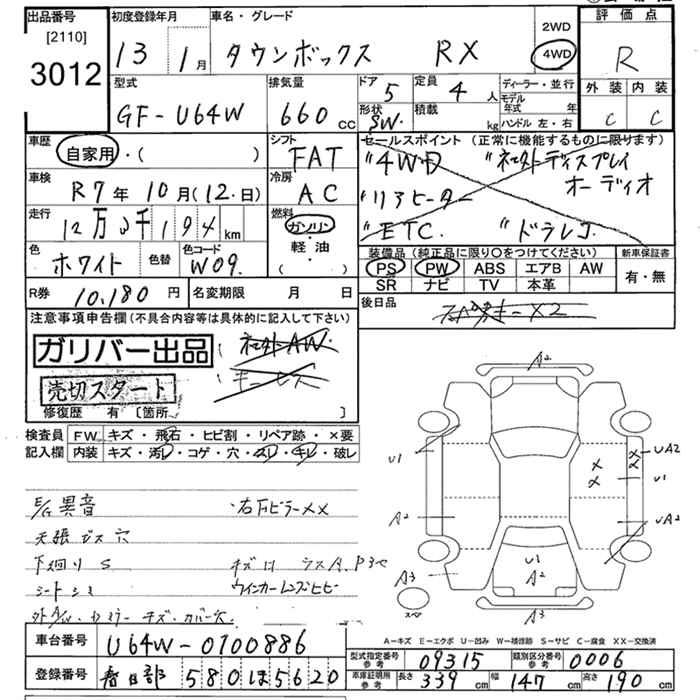 出品番号
[2110]
3012
初度登録年月
13 1月
車名・グレード
タウンボックス RX
2WD
4WD
評価点
R
外装 内装
C C
型式
GF-U64W
排気量
660 CC
ドア 5
形状 SW.
定員 4 人
積載 kg
ディーラー・並行
モデル年式 年
ハンドル 左・右
車歴
自家用・( )
シフト
FAT
セールスポイント (正常に機能するものに限ります)
"4WD "社外ディスプレイ
オーディオ
"リアヒーター
"ETC. "ドラレコ.
車検
R7年10月(12.日)
冷房
AC
走行
12万0千194km
燃料
ガソリン
軽・油
( )
色
ホワイト
色替
色コード
W09.
装備品 (純正品に限り○をつけてください)
PS PW ABS エアB AW
SR ナビ TV 本革
新車保証書
有・無
R券 10,180円
名変期限 月 日
後日品
注意事項申告欄 (不具合内容等は具体的に記入して下さい)
ガリバー出品
社外AW
売切スタート
修復歴 有 [箇所 ]
検査員
記入欄
FW キズ・飛石・ヒビ割・リペア跡・×要
内装 キズ・汚レ・コゲ・穴・スレ・キレ・破レ
E/G異音 ・右Fピラー××
天張ビス穴
下廻りS
シートシミ ウインカーレンズヒビ
A2
U1
UA2
U1
A2
UA2
U1
A2
A3
A3
スペア
A-キズ E-エクボ U-凹み W-補修跡 S-サビ C-腐食 XX-交換済
車台番号 U64W-0700886
型式指定番号 参考 09315
類別区分番号 参考 0006
登録番号 春日部 580ほ5620
車庫証明用 参考 長さ 339cm 幅 147cm 高さ 190cm